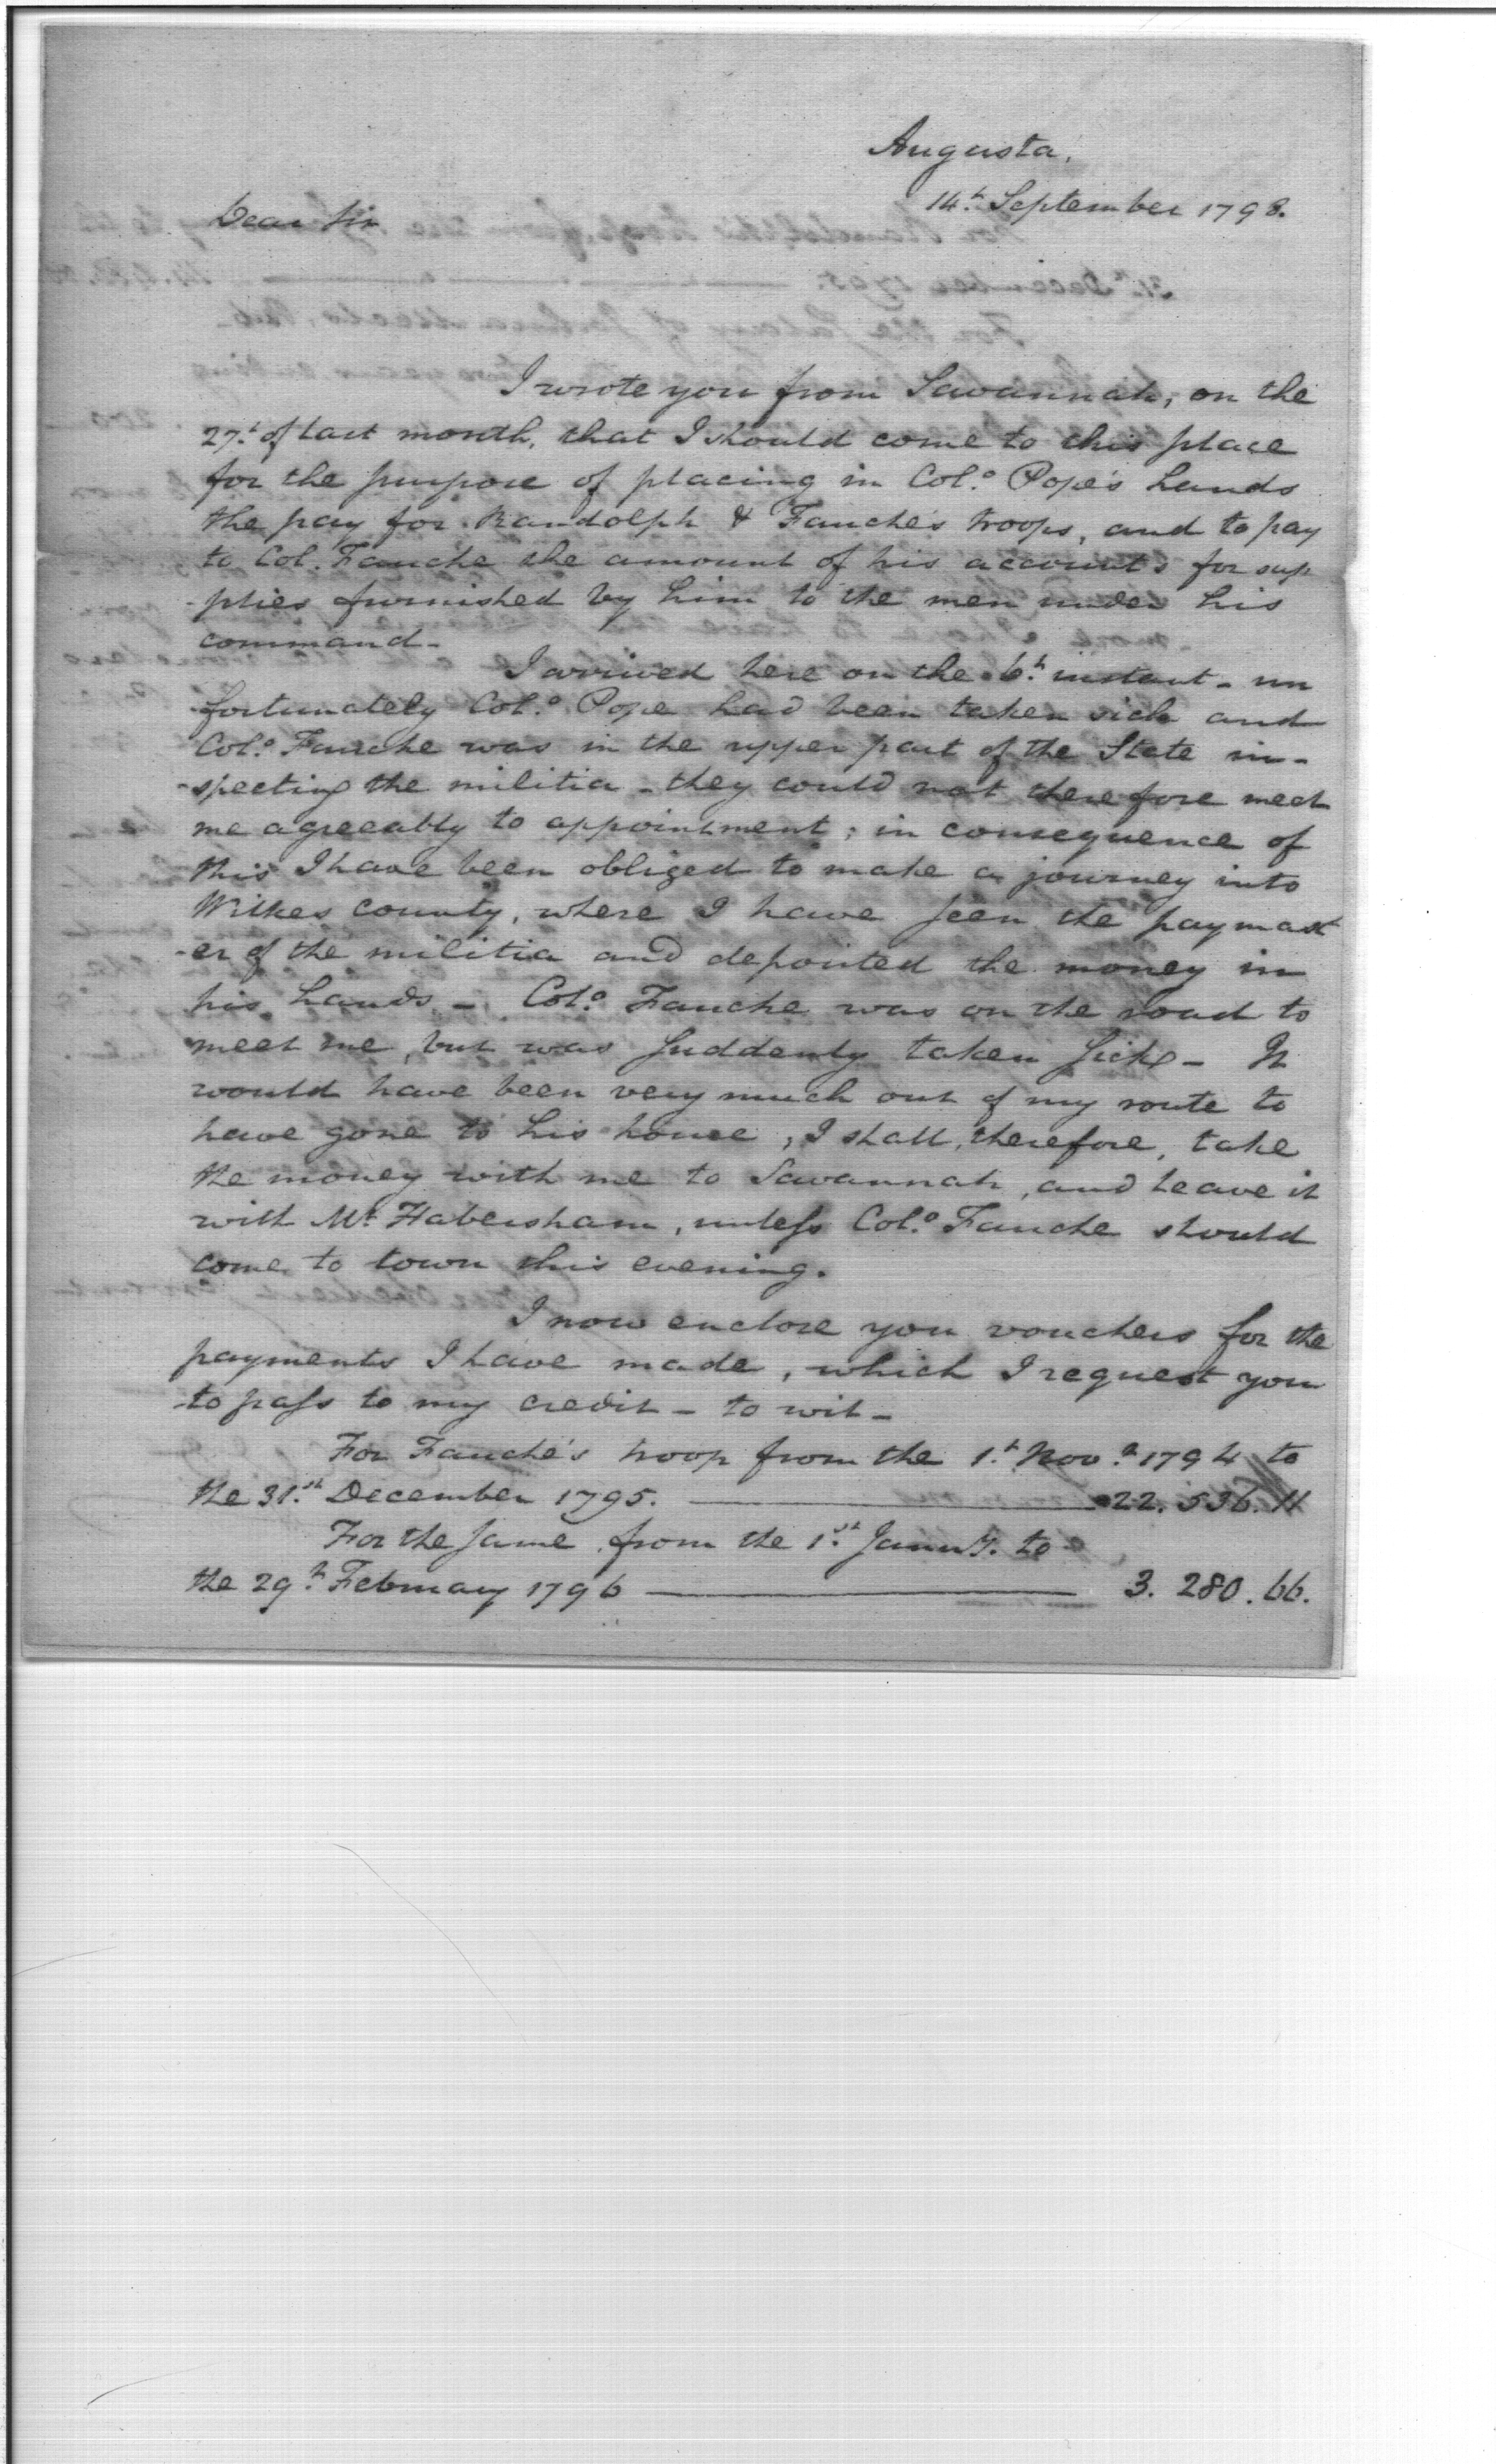 Augusta,
14.h September 1798.
Dear Sir
I wrote you from Savannah, on the
27.h of last month, that I should come to this place
for the purpose of placing in Col.o Pope's hands
the pay for Randolph & Fauche's troops, and to pay
to Col. Fauche the amount of his account's for sup
-plies furnished by him to the men under his
command -
I arrived here on the 6.h instant - un
-fortunately Col.o Pope had been taken sick and
Col.o Fauche was in the upper part of the State in-
-specting the militia - they could not therefore meet
me agreeably to appointment; in consequence of
this I have been obliged to make a journey into
Wilkes county, where I have seen the paymast
-er of the militia and deposited the money in
his hands - Col.o Fauche was on the road to
meet me, but was suddenly taken sick - It
would have been very much out of my route to
have gone to his house, I shall, therefore, take
the money with me to Savannah, and leave it
with Mr Habersham, unless Col.o Fauche should
come to town this evening.
I now enclose you vouchers for the
payments I have made, which I request you
to pass to my credit - to wit -
For Fauche's troop from the 1.t Nov.r 1794 to
the 31.st December 1795. 22.536.11
For the same, from the 1.st Janu'y. to
the 29.h February 1796 3.280.66.